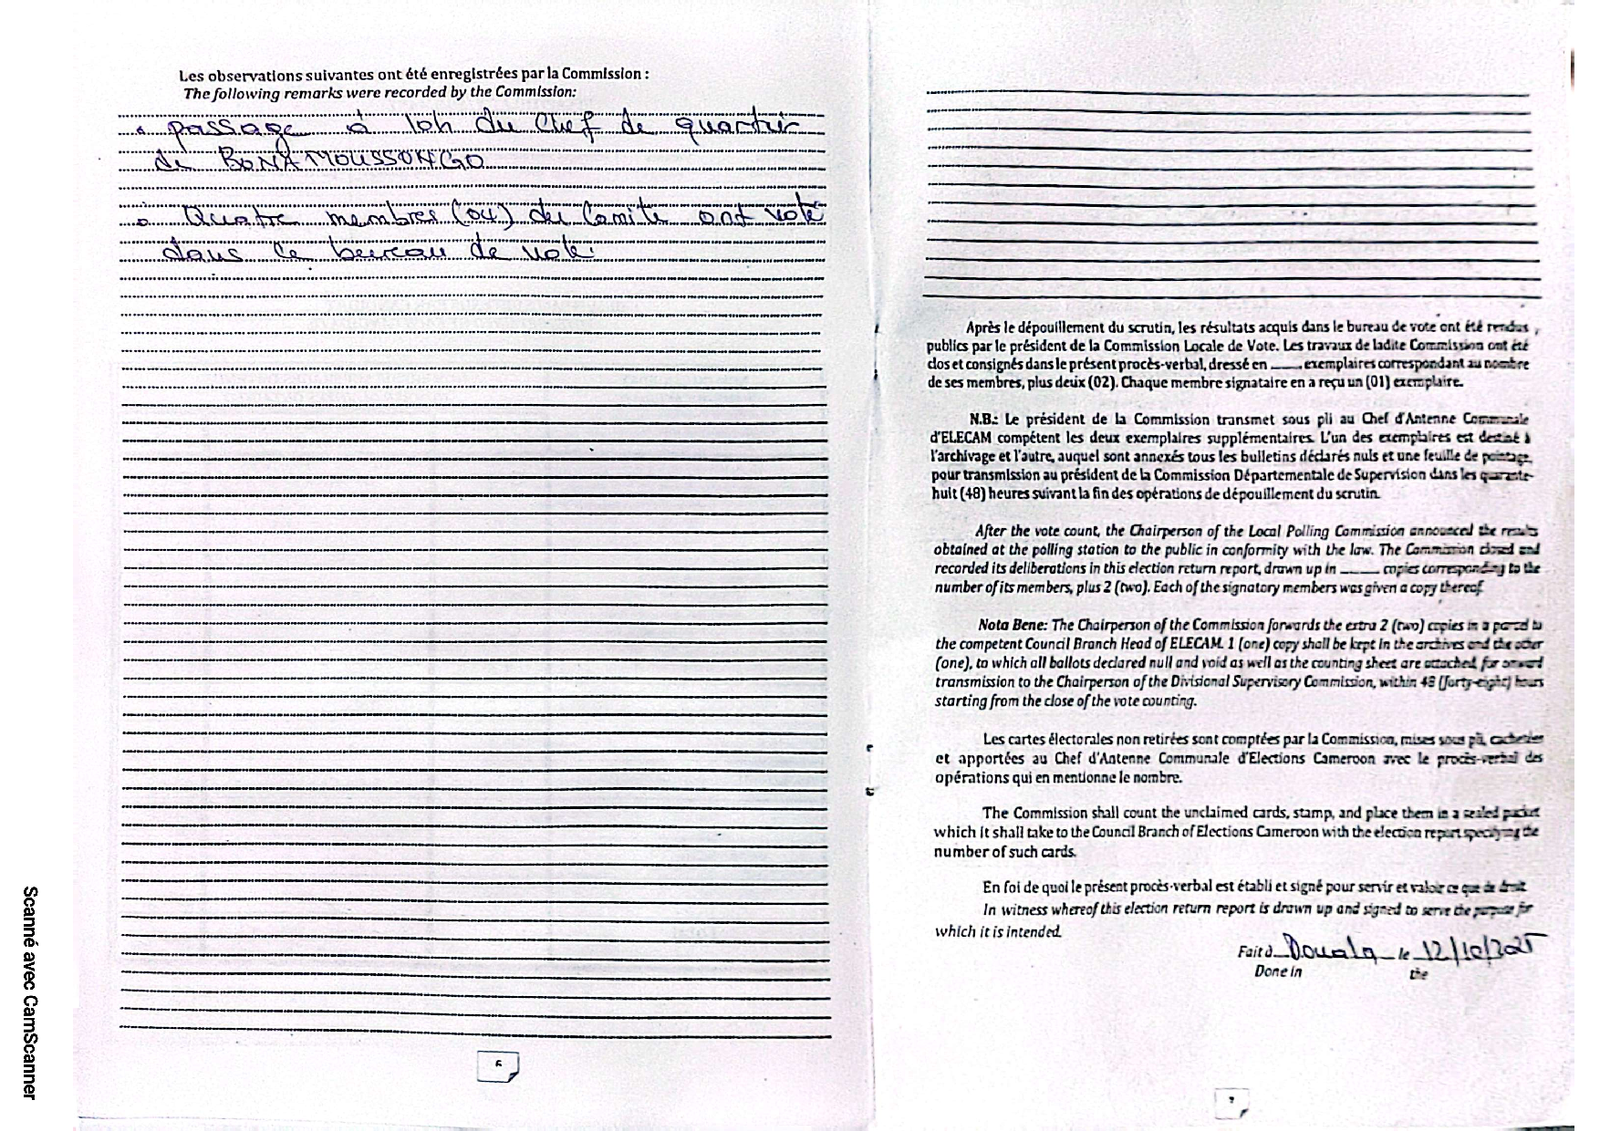 Les observations suivantes ont été enregistrées par la Commission :
The following remarks were recorded by the Commission:
• Passage à 10h du Chef de quartier
de BONAMOUSSONGO
• Quatre membres (04) du Comité ont voté
dans ce bureau de vote.
6
Après le dépouillement du scrutin, les résultats acquis dans le bureau de vote ont été rendus
publics par le président de la Commission Locale de Vote. Les travaux de ladite Commission ont été
clos et consignés dans le présent procès-verbal, dressé en ____ exemplaires correspondant au nombre
de ses membres, plus deux (02). Chaque membre signataire en a reçu un (01) exemplaire.
N.B.: Le président de la Commission transmet sous pli au Chef d'Antenne Communale
d'ELECAM compétent les deux exemplaires supplémentaires. L'un des exemplaires est destiné à
l'archivage et l'autre, auquel sont annexés tous les bulletins déclarés nuls et une feuille de pointage,
pour transmission au président de la Commission Départementale de Supervision dans les quarante-
huit (48) heures suivant la fin des opérations de dépouillement du scrutin.
After the vote count, the Chairperson of the Local Polling Commission announced the results
obtained at the polling station to the public in conformity with the law. The Commission closed and
recorded its deliberations in this election return report, drawn up in ____ copies corresponding to the
number of its members, plus 2 (two). Each of the signatory members was given a copy thereof.
Nota Bene: The Chairperson of the Commission forwards the extra 2 (two) copies in a parcel to
the competent Council Branch Head of ELECAM. 1 (one) copy shall be kept in the archives and the other
(one), to which all ballots declared null and void as well as the counting sheet are attached, for onward
transmission to the Chairperson of the Divisional Supervisory Commission, within 48 (forty-eight) hours
starting from the close of the vote counting.
Les cartes électorales non retirées sont comptées par la Commission, mises sous pli, cachetées
et apportées au Chef d'Antenne Communale d'Elections Cameroon avec le procès-verbal des
opérations qui en mentionne le nombre.
The Commission shall count the unclaimed cards, stamp, and place them in a sealed packet
which it shall take to the Council Branch of Elections Cameroon with the election report specifying the
number of such cards.
En foi de quoi le présent procès-verbal est établi et signé pour servir et valoir ce que de droit
In witness whereof this election return report is drawn up and signed to serve the purpose for
which it is intended.
Fait à Douala le 12/10/2025
Done in the
7
Scanné avec CamScanner